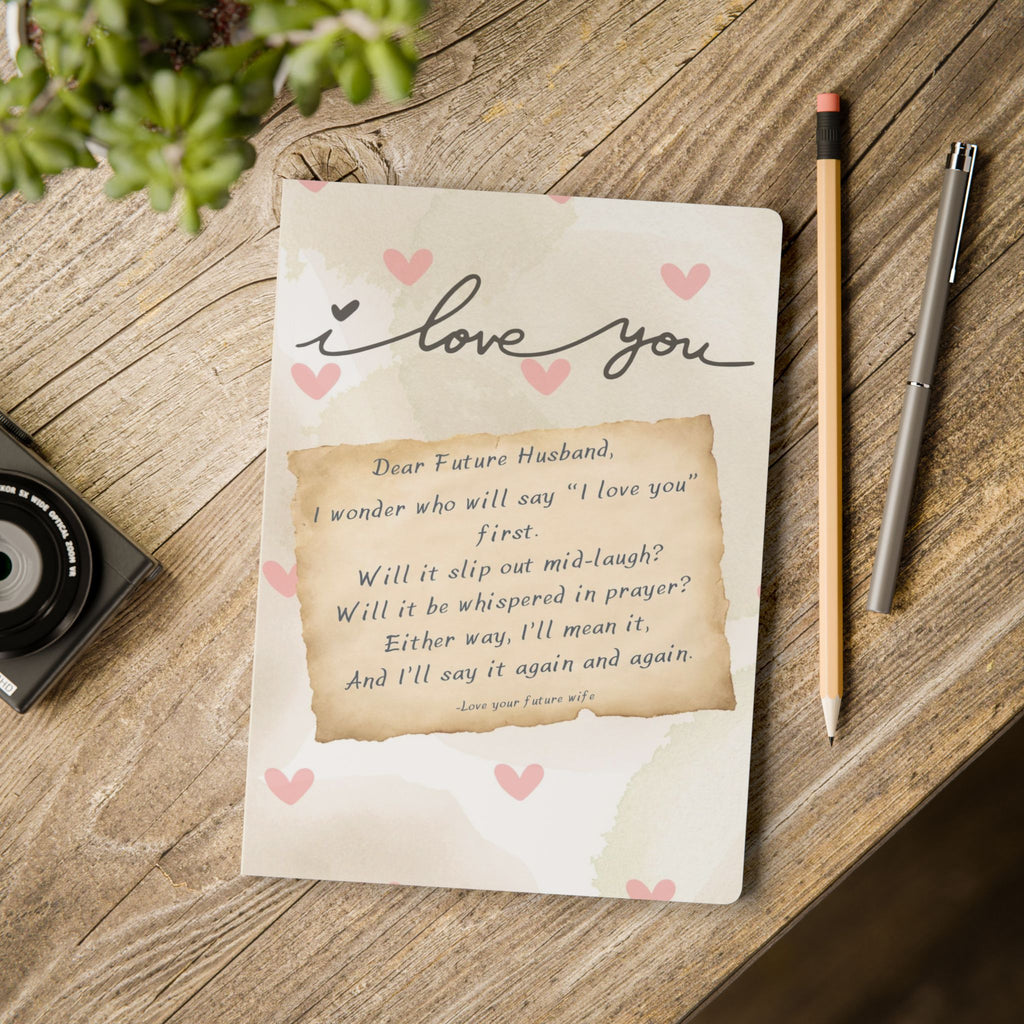 i love you
Dear Future Husband,
I wonder who will say “I love you”
first.
Will it slip out mid-laugh?
Will it be whispered in prayer?
Either way, I'll mean it,
And I'll say it again and again.
-Love your future wife
5X WIDE OPTICAL ZOOM VR